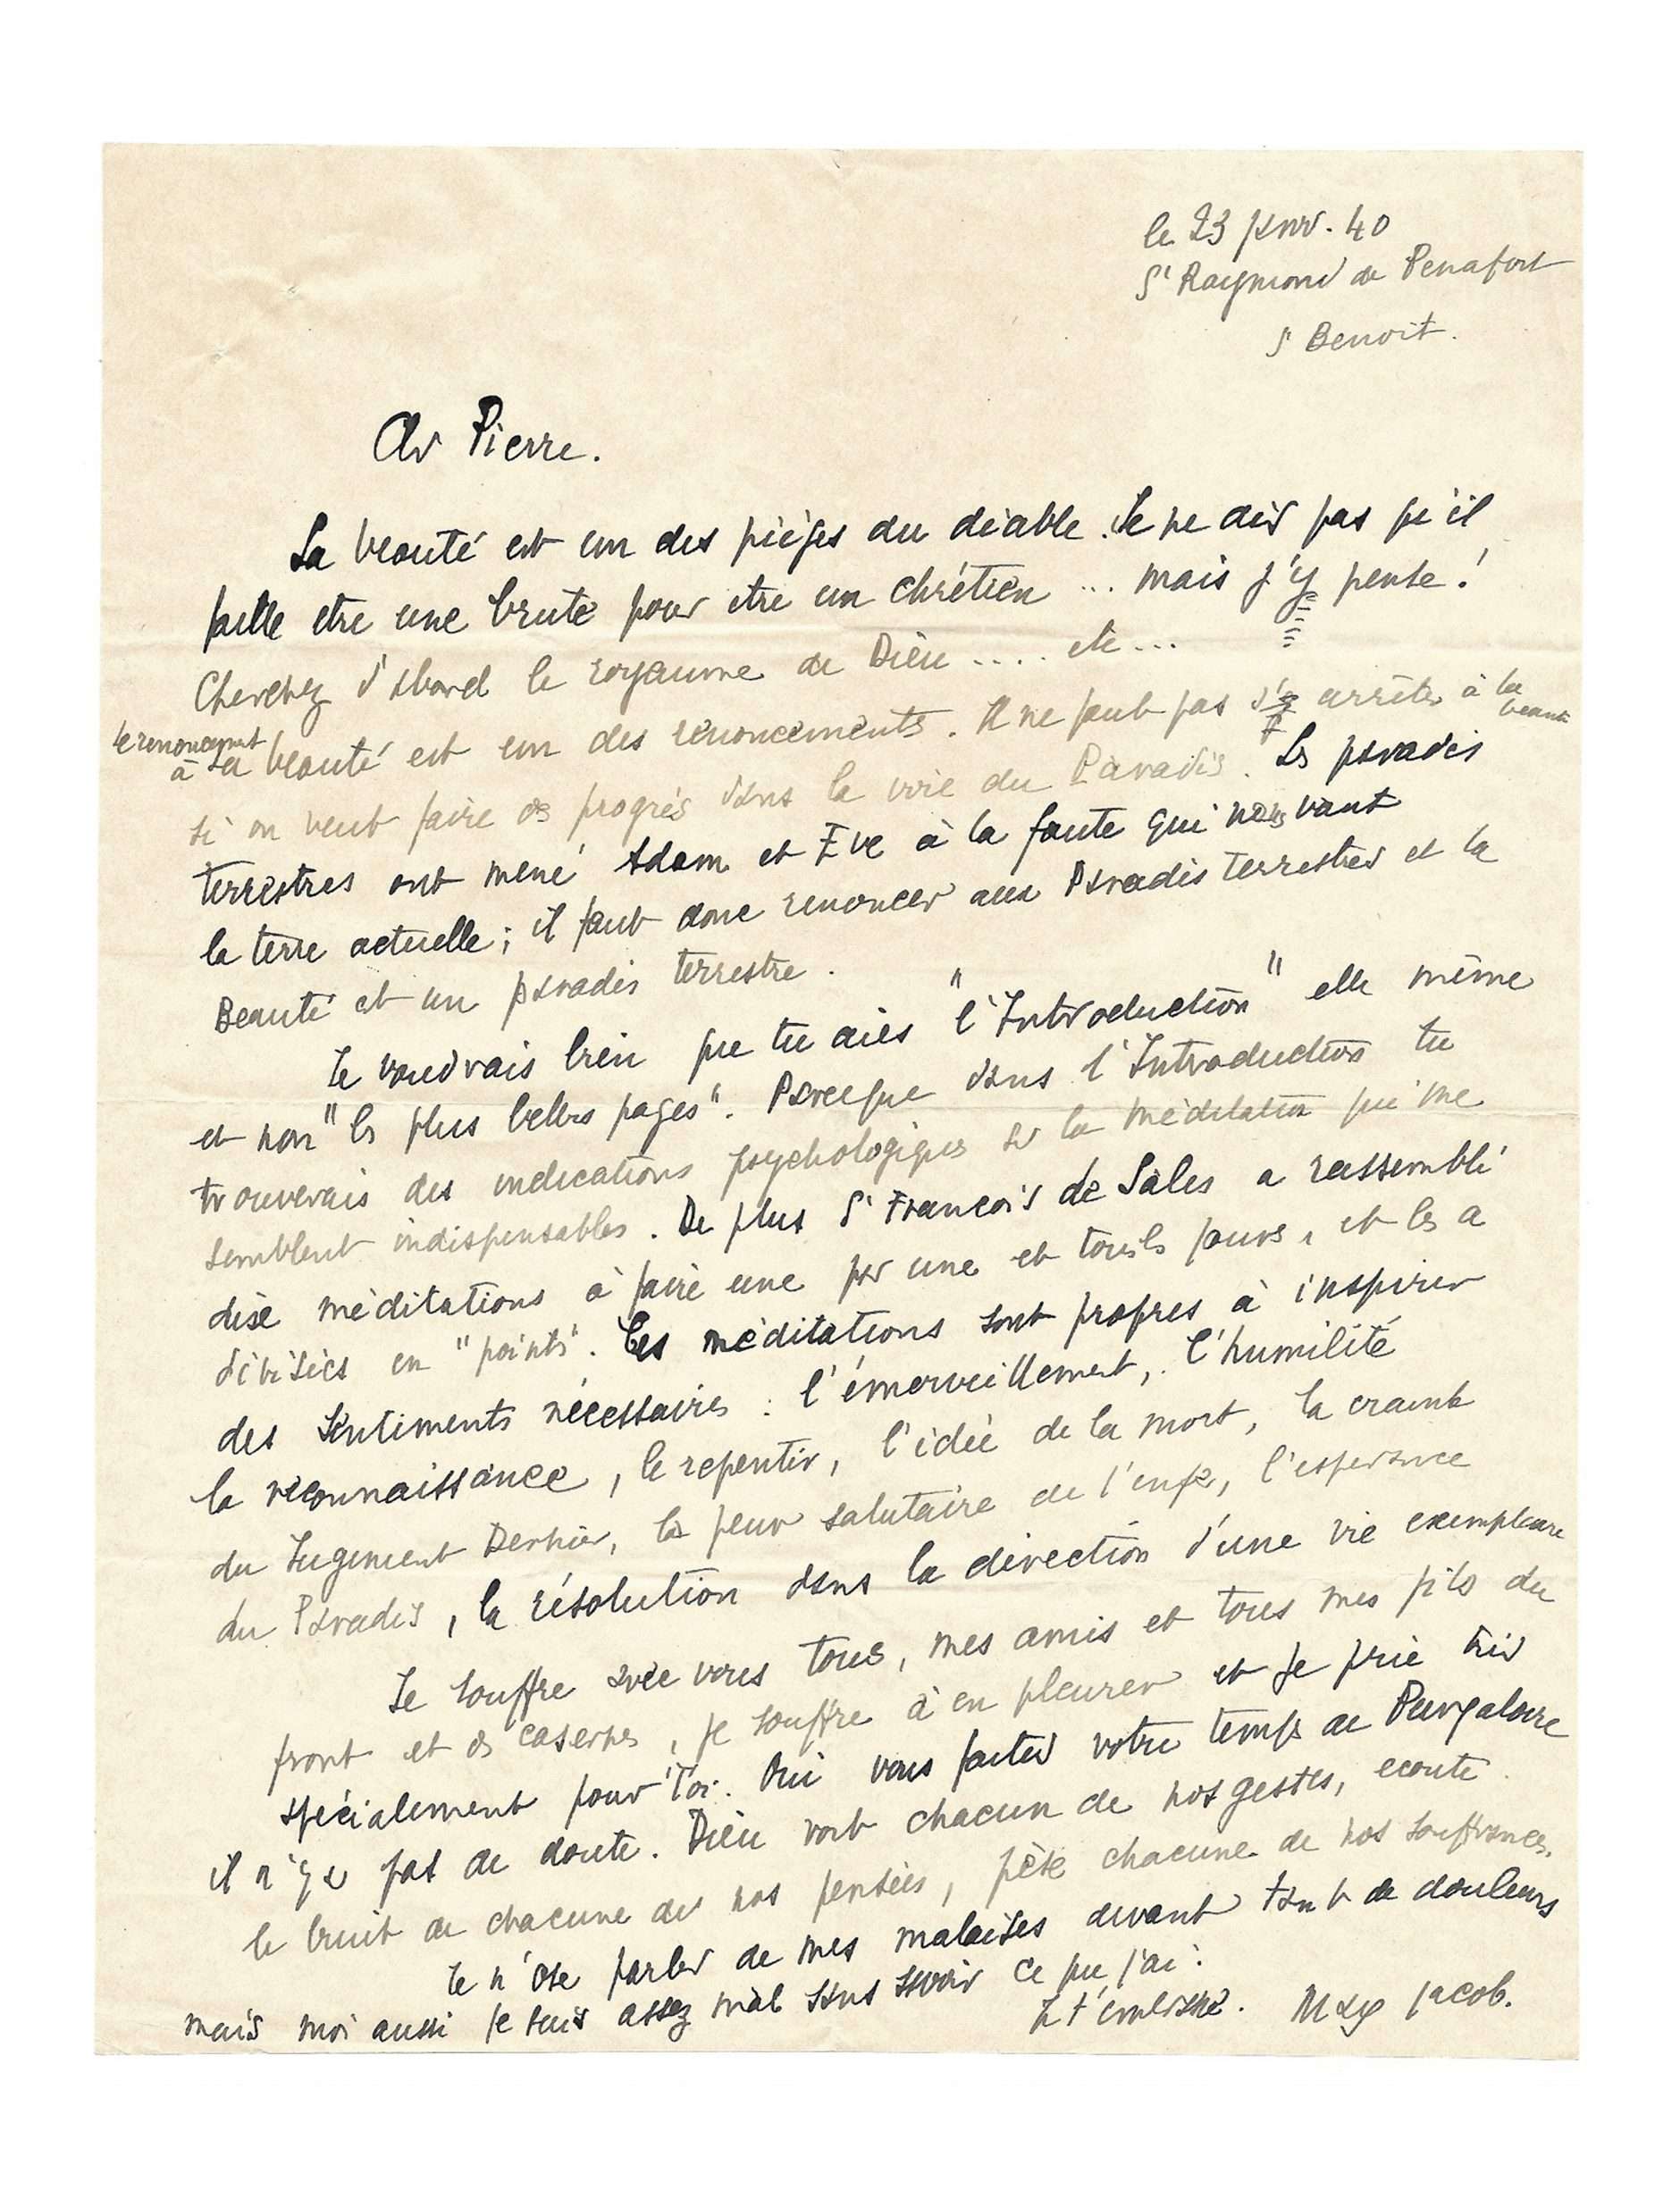 le 23 janv. 40
St Raymond de Penafort
St Benoit.
Cher Pierre.
La beauté est un des pièges du diable. Je ne dis pas qu'il
faille etre une brute pour etre un chrétien ... mais j'y pense!
Cherchez d'abord le royaume de Dieu .... etc ...
le renoncement
à la beauté est un des renoncements. Il ne faut pas s' arrêter à la beauté
si on veut faire des progrès dans la voie du Paradis. Les paradis
terrestres ont mené Adam et Eve à la faute qui nous vaut
la terre actuelle; il faut donc renoncer aux Paradis terrestres et la
Beauté est un paradis terrestre.
Je voudrais bien que tu aies "l'Introduction" elle même
et non "les plus belles pages". Parceque dans l'Introduction tu
trouverais des indications psychologiques sur la méditation qui me
semblent indispensables. De plus St François de Sales a rassemblé
dise méditations à faire une par une et tous les jours, et les a
divisées en "points". Ces méditations sont propres à inspirer
des sentiments nécessaires: l'émerveillement, l'humilité
la reconnaissance, le repentir, l'idée de la mort, la crainte
du Jugement Dernier, la peur salutaire de l'enfer, l'esperance
du Paradis, la résolution dans la direction d'une vie exemplaire
Je souffre avec vous tous, mes amis et tous mes fils du
front et des casernes, je souffre à en pleurer et je prie très
spécialement pour Toi. Oui vous faites votre temps de Purgatoire
il n'y a pas de doute. Dieu voit chacun de nos gestes, ecoute
le bruit de chacune de nos pensées, pèse chacune de nos souffrances.
Je n'ose parler de mes malaises devant tant de douleurs
mais moi aussi je suis assez mal sans savoir ce que j'ai.
Je t'embrasse. Max Jacob.